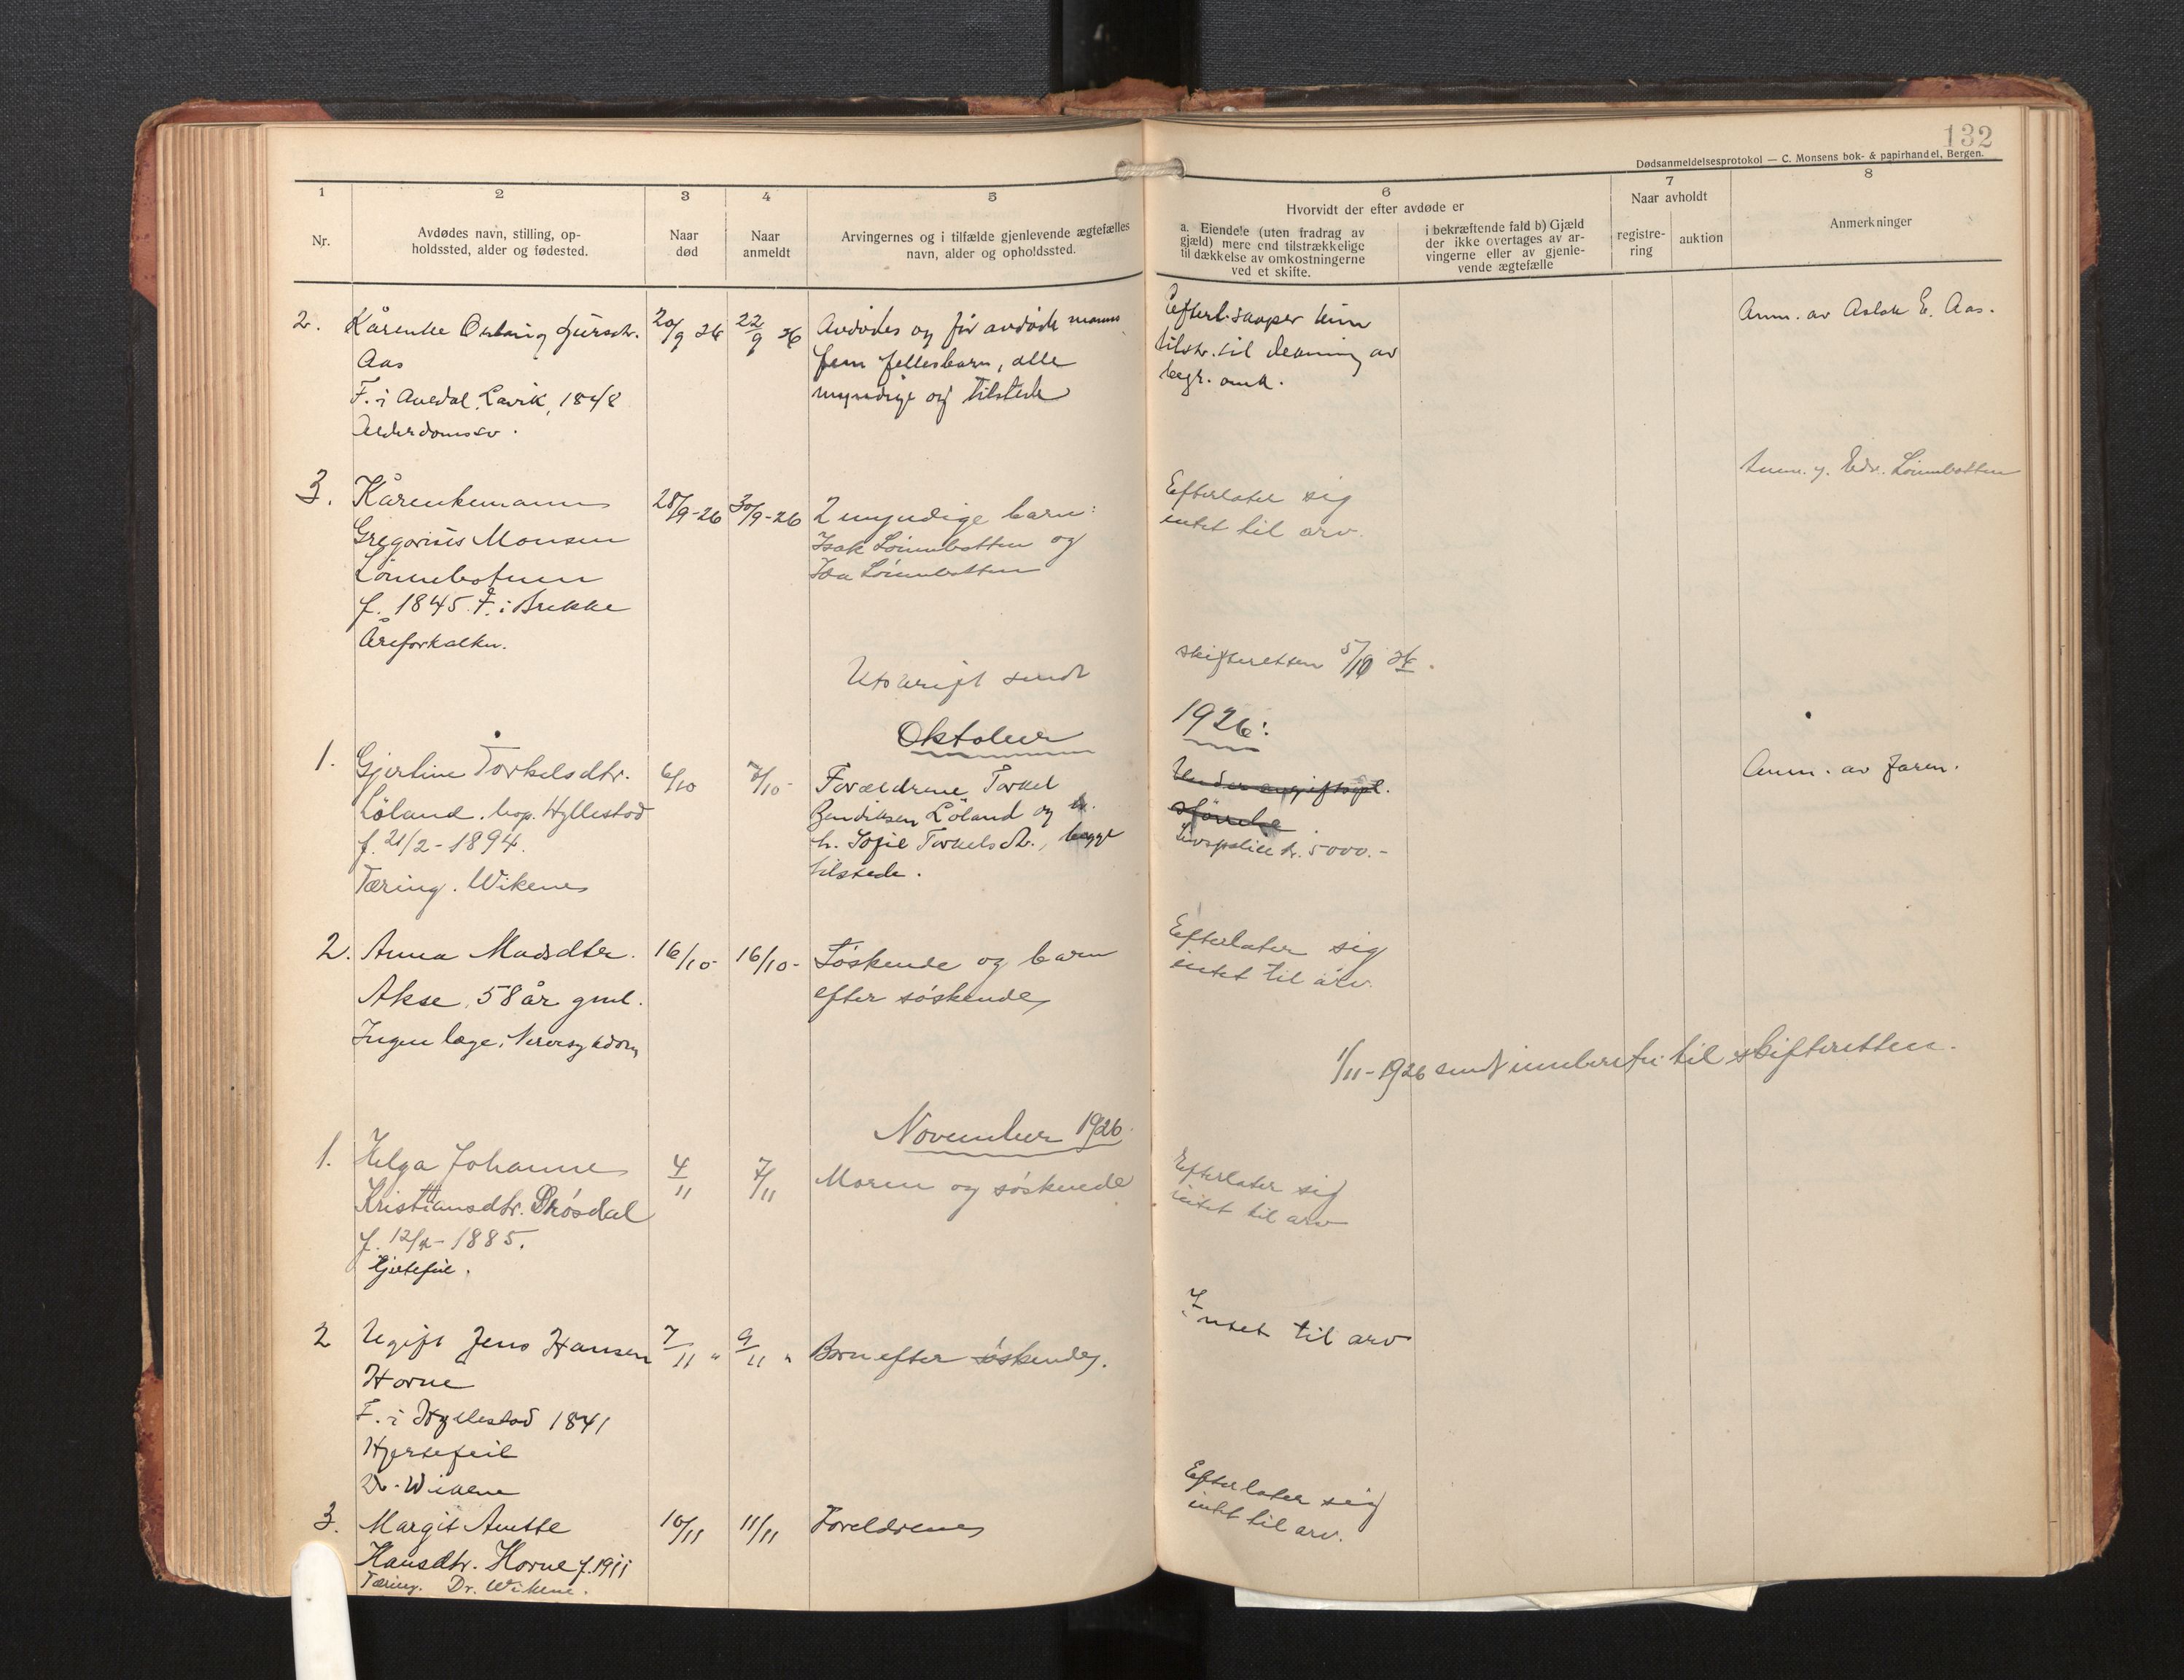 132
Dødsanmeldelsesprotokol — C. Monsens bok- & papirhandel, Bergen.
1
2
3
4
5
6
7
8
Nr.
Avdødes navn, stilling, op-
holdssted, alder og fødested.
Naar
død
Naar
anmeldt
Arvingernes og i tilfælde gjenlevende ægtefælles
navn, alder og opholdssted.
Hvorvidt der efter avdøde er
a. Eiendele (uten fradrag av
gjæld) mere end tilstrækkelige
til dækkelse av omkostningerne
ved et skifte.
i bekræftende fald b) Gjæld
der ikke overtages av ar-
vingerne eller av gjenle-
vende ægtefælle
Naar avholdt
registre-
ring
auktion
Anmerkninger
2.
Kårenke
Aas
F. i Lavik, 1848
Alderdomssv.
20/9 26
22/9 26
Avdødes og før avdøde manns
fem fellesbarn, alle
myndige og tilstede
Efterl. skaper kun
tilstr. til dekning av
begr. omk.
Anm. av Aslak E. Aas.
3.
Kårenkemann
Gregorius Monsen
Lönnebotnen
f. 1845. F. i Brekke
Åreforkalkn.
28/9-26
30/9-26
2 myndige barn:
Isak Lönnebotten og
Lönnebotten
Efterlater sig
intet til arv.
Anm. Lönnebotten
Utskrift sendt
skifteretten 5/10 26.
Oktober
1926:
1.
Gjertine Torkelsdtr.
Löland. Hyllestad
f. 21/2-1894.
Tæring. Wikenes
6/10
7/10
Forældrene Torkel
Bendiksen Löland og
h. Sofie Torkelsdt., begge
tilstede.
større
Livspolise kr. 5000.-
Anm. av faren.
2.
Anna Madsdtr.
Akse, 58 år gml.
Ingen læge. Nervesykdom
16/10-
16/10-
Söskende og barn
efter söskende
Efterlater sig
intet til arv.
1/11-1926 sendt innberetn. til skifteretten.
November 1926.
1.
Helga Johanne
Kristiansdtr.
f. 1885.
Hjertefeil.
4/11
7/11
Moren og söskende
Efterlater sig
intet til arv
2
Ugift Jens Hansen
Horne
F. i Hyllestad 1841
Hjertefeil
Dr. Wikene
7/11 "
9/11 "
Born efter söskende.
Intet til arv
3.
Margit Anette
Hansdtr. Horne f. 1911
Tæring. Dr. Wikene.
10/11
11/11
Foreldrene
Efterlater sig
intet til arv.